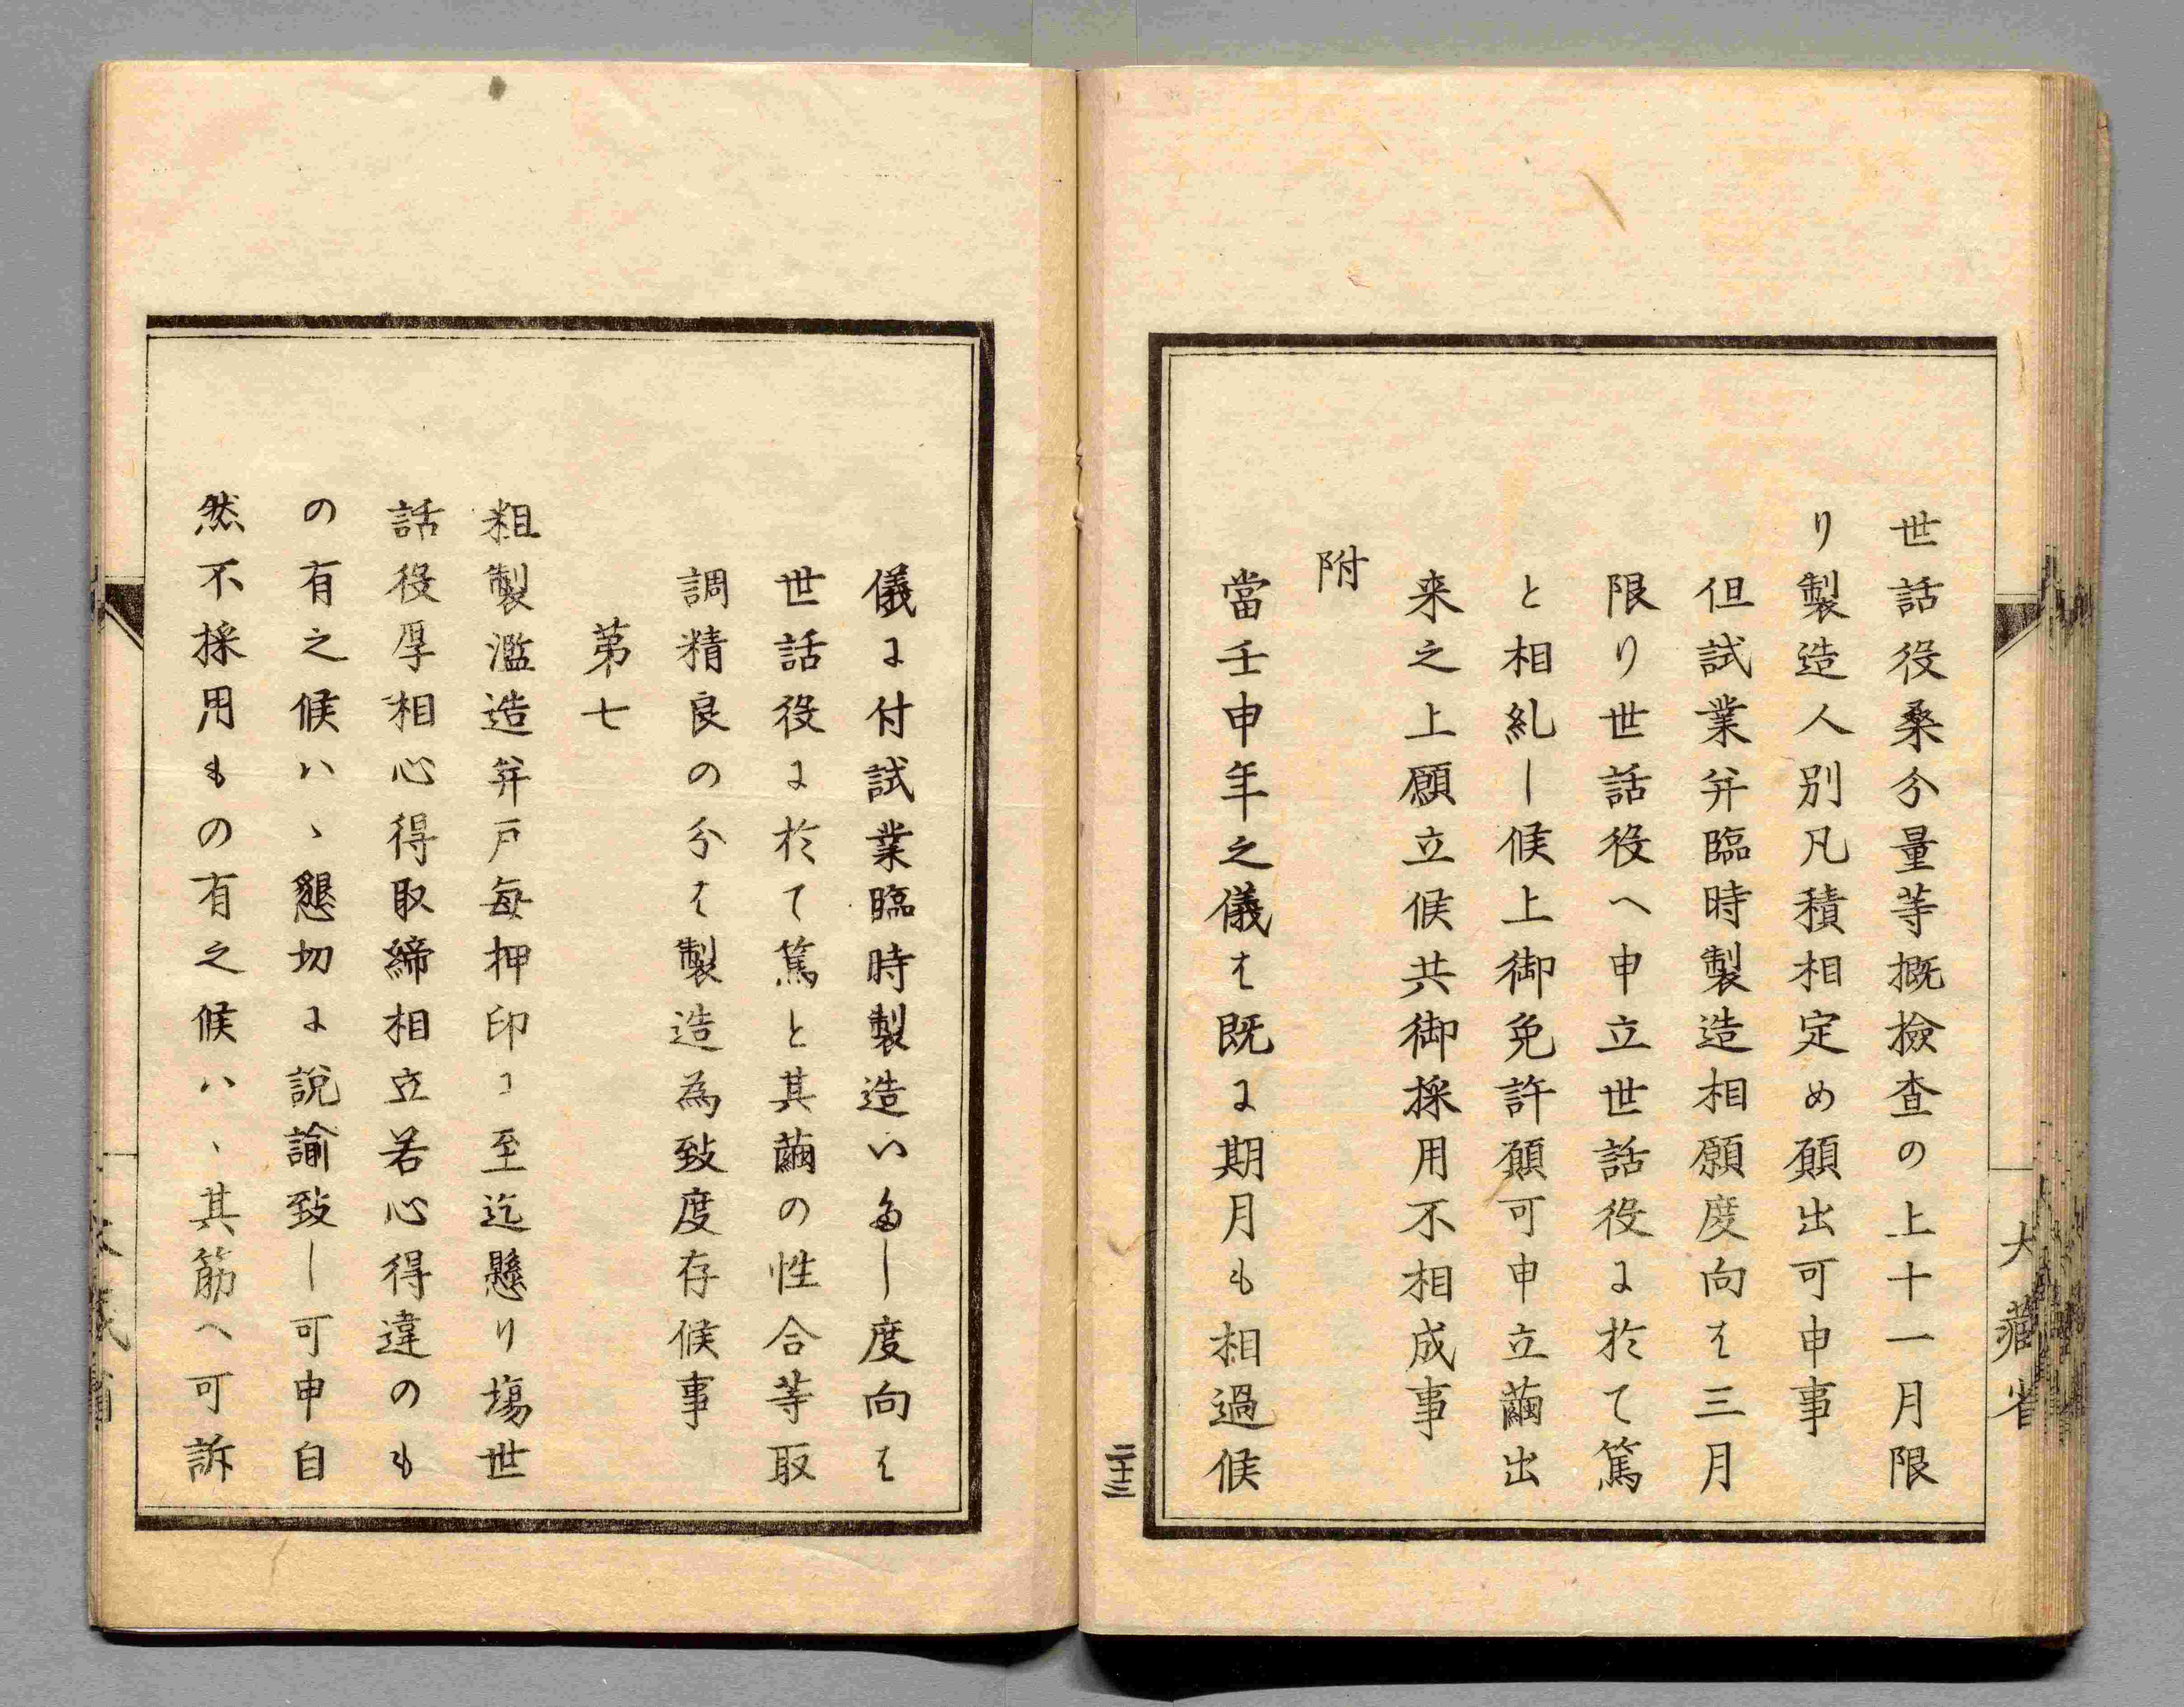 世話役桑分量等概撿査の上十一月限
り製造人別凡積相定め願出可申事
但試業并臨時製造相願度向は三月
限り世話役へ申立世話役に於て篤
と相糺し候上御免許願可申立繭出
来之上願立候共御採用不相成事
附
當壬申年之儀は既に期月も相過候
二十三
大藏省
儀に付試業臨時製造いたし度向は
世話役に於て篤と其繭の性合等取
調精良の分は製造為致度存候事
第七
粗製濫造并戸毎押印ニ至迄懸り塲世
話役厚相心得取締相立若心得違のも
の有之候ハヽ懇切に説諭致し可申自
然不採用もの有之候ハヽ其筋へ可訴